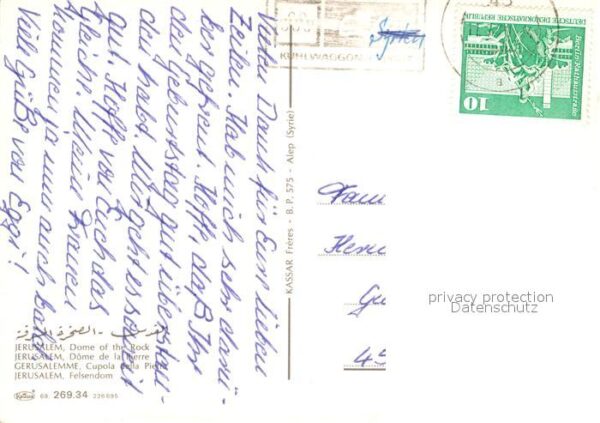 Vielen Dank für Eure lieben
Zeilen. Hab mich sehr darü-
ber gefreut. Hoffe, daß Ihr
den Geburtstag gut überstan-
den habt. Mir geht es soweit
gut. Hoffe von Euch das
Gleiche. Meine Frauen
kommen ja nun auch bald.
Viel Grüße von Eggi!
KÜHLWAGGON
Syrien
DEUTSCHE DEMOKRATISCHE REPUBLIK
Berlin-Rathausstraße
10
KASSAR Frères - B. P. 575 - Alep (Syrie)
Fam
45
privacy protection
Datenschutz
القدس - الصخرة المشرفة
JERUSALEM, Dome of the Rock
JERUSALEM, Dôme de la Pierre
GERUSALEMME, Cupola della Pie
JERUSALEM, Felsendom
69. 269.34 226695